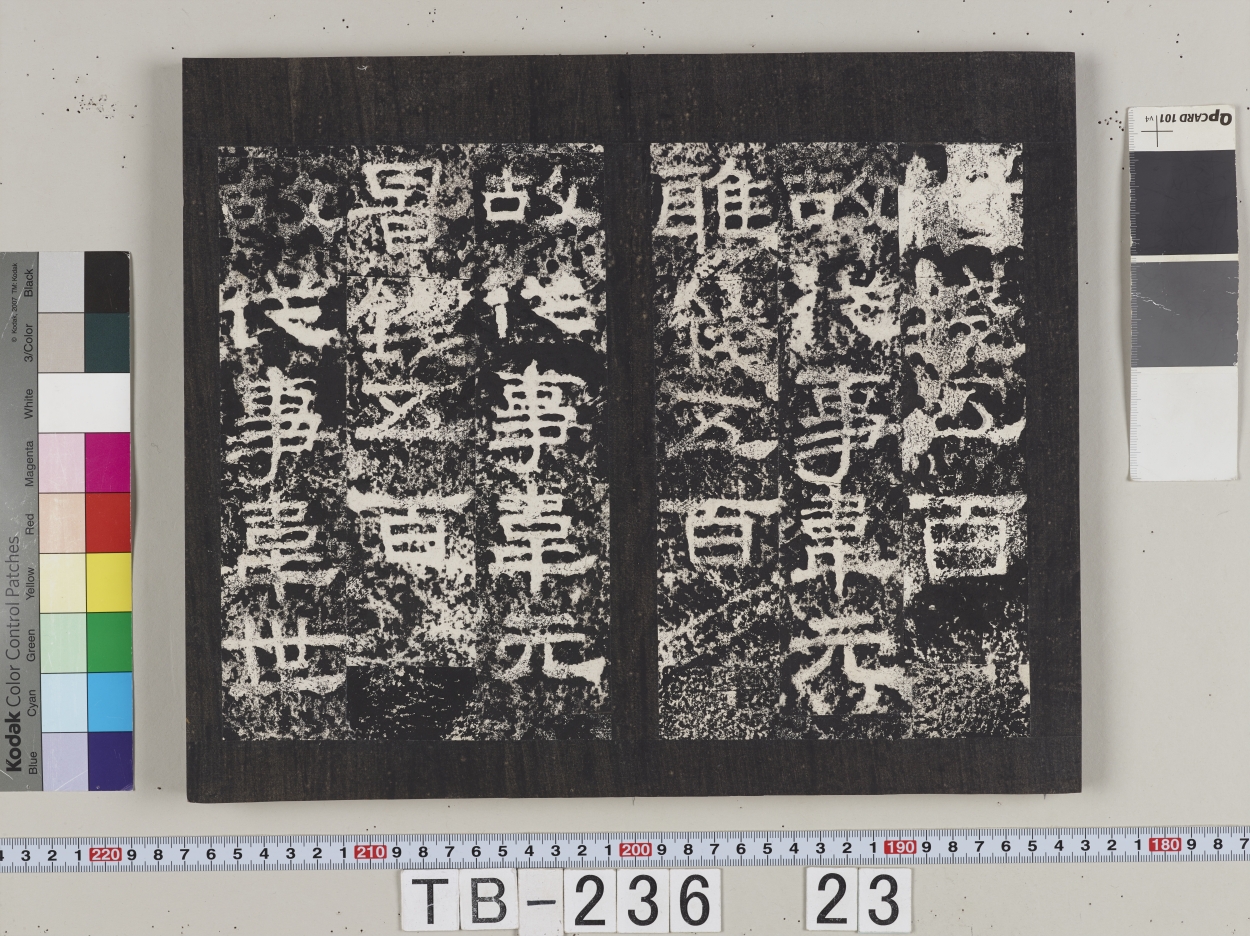 百
故從事韋元
雅錢五百
故從事韋元
景錢五百
故從事韋世
QPCARD 101 v4
Kodak Color Control Patches
© Kodak, 2007 TM: Kodak
Blue Cyan Green Yellow Red Magenta White 3/Color Black
4 3 2 1 220 9 8 7 6 5 4 3 2 1 210 9 8 7 6 5 4 3 2 1 200 9 8 7 6 5 4 3 2 1 190 9 8 7 6 5 4 3 2 1 180 9 8 7
TB-236 23